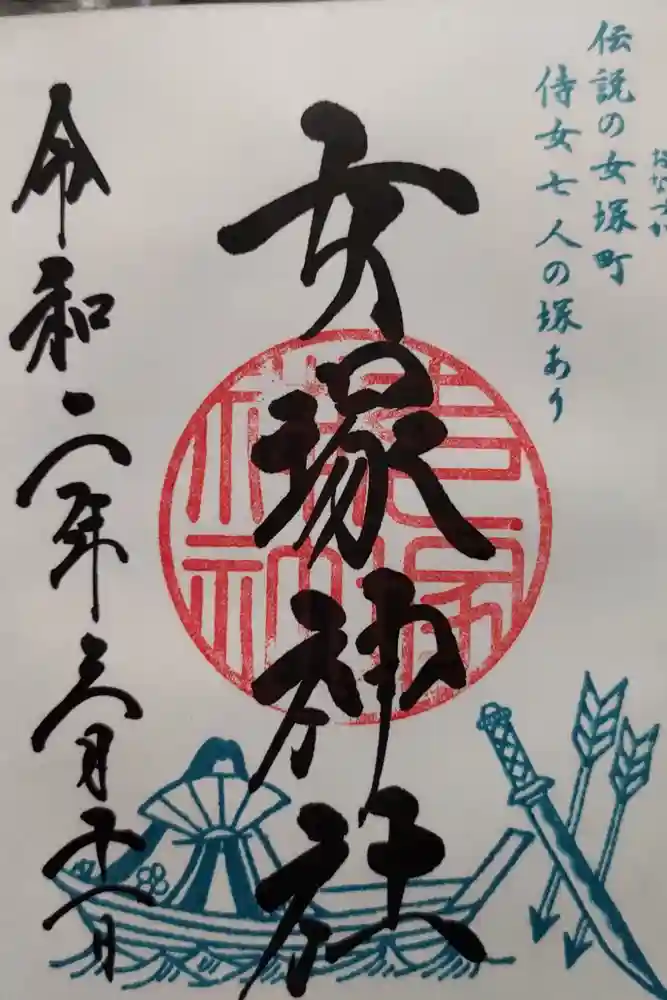 伝説の女塚町
侍女七人の塚あり
女塚神社
令和二年三月十八日